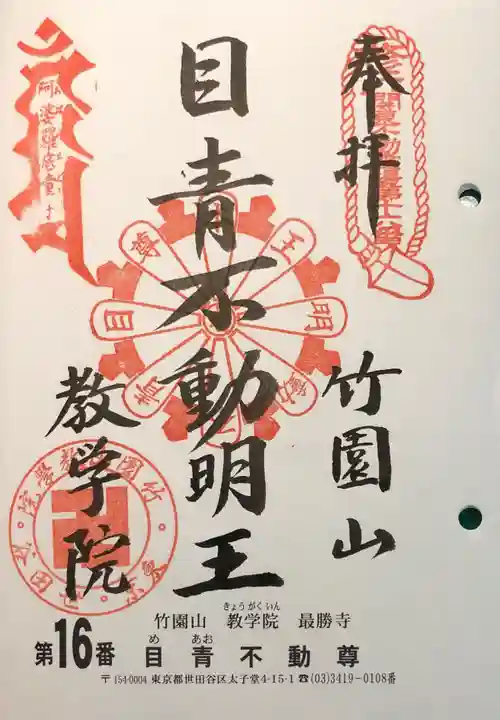 奉拝
竹園山
目青不動明王
教学院
竹園山 教学院 最勝寺
きょうがくいん
第16番 目青不動尊
め あお
〒154-0004 東京都世田谷区太子堂4-15-1 ☎(03)3419-0108番